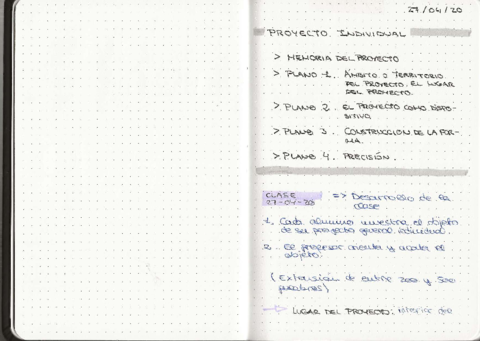 27/04/20
PROYECTO INDIVIDUAL
> MEMORIA DEL PROYECTO
> PLANO 1. ÁMBITO O TERRITORIO
DEL PROYECTO. EL LUGAR
DEL PROYECTO.
> PLANO 2. EL PROYECTO COMO DISPO-
SITIVO
> PLANO 3. CONSTRUCCION DE LA FOR-
MA.
> PLANO 4. PRECISIÓN.
CLASE
27-04-20
=> Desarrollo de la
clase.
1. Cada alumno muestra el objeto
de su proyecto general individual.
2. El profesor orienta y acota el
objeto.
(Extensión de entre 300 y 500
palabras)
LUGAR DEL PROYECTO: